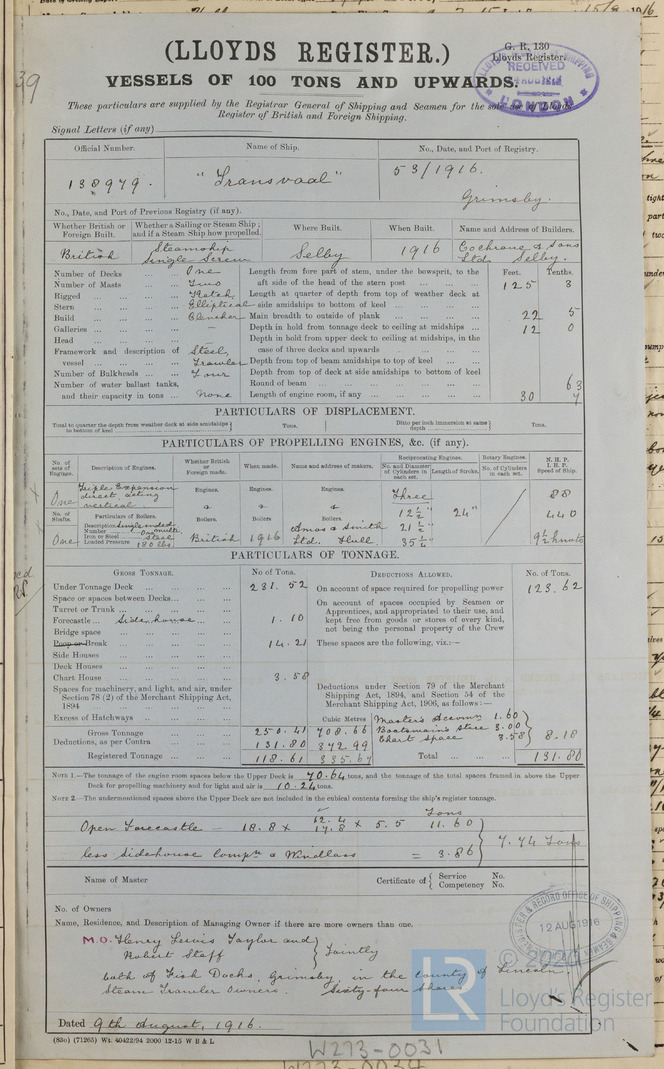 (LLOYDS REGISTER.)
G. R. 130
Lloyds Register.
VESSELS OF 100 TONS AND UPWARDS.
RECEIVED
LONDON
39
These particulars are supplied by the Registrar General of Shipping and Seamen for the sole use of Lloyds
Register of British and Foreign Shipping.
Signal Letters (if any)
Official Number. Name of Ship. No., Date, and Port of Registry.
138979. "Transvaal" 53/1916.
Grimsby.
No., Date, and Port of Previous Registry (if any).
Whether British or Foreign Built. Whether a Sailing or Steam Ship; and if a Steam Ship how propelled. Where Built. When Built. Name and Address of Builders.
British Steamship Single Screw Selby 1916 Cochrane & Sons Ltd. Selby.
Number of Decks One Length from fore part of stem, under the bowsprit, to the Feet. Tenths.
Number of Masts Two aft side of the head of the stern post 125 3
Rigged Ketch Length at quarter of depth from top of weather deck at
Stern Elliptical side amidships to bottom of keel
Build Clencher Main breadth to outside of plank 22 5
Galleries — Depth in hold from tonnage deck to ceiling at midships 12 0
Head Depth in hold from upper deck to ceiling at midships, in the
Framework and description of Steel, case of three decks and upwards
vessel Trawler Depth from top of beam amidships to top of keel
Number of Bulkheads Four Depth from top of deck at side amidships to bottom of keel
Number of water ballast tanks, Round of beam 63
and their capacity in tons None Length of engine room, if any 30 7
PARTICULARS OF DISPLACEMENT.
Total to quarter the depth from weather deck at side amidships to bottom of keel Tons. Ditto per inch immersion at same depth Tons.
PARTICULARS OF PROPELLING ENGINES, &c. (if any).
No. of sets of Engines. Description of Engines. Whether British or Foreign made. When made. Name and address of makers. Reciprocating Engines. Rotary Engines. N. H. P.
No. and Diameter of Cylinders in each set. Length of Stroke. No. of Cylinders in each set. I. H. P. Speed of Ship.
One Triple Expansion direct acting vertical Engines. Engines. Engines. Three 88
No. of Shafts. Particulars of Boilers. & & & 12 ½" 24" 440
Description Single ended multi Boilers. Boilers Boilers. 21 ½"
Number One
Iron or Steel Steel
One Loaded Pressure 180 lbs. British 1916 Amos & Smith Ltd. Hull 35 ¼" 9 ½ knots
PARTICULARS OF TONNAGE.
GROSS TONNAGE. No of Tons. DEDUCTIONS ALLOWED. No. of Tons.
Under Tonnage Deck 231.52 On account of space required for propelling power 123.62
Space or spaces between Decks On account of spaces occupied by Seamen or
Turret or Trunk Apprentices, and appropriated to their use, and
Forecastle Sidehouse 1.10 kept free from goods or stores of every kind,
Bridge space not being the personal property of the Crew
Poop or Break 14.21 These spaces are the following, viz.:—
Side Houses
Deck Houses
Chart House 3.58
Spaces for machinery, and light, and air, under Deductions under Section 79 of the Merchant
Section 78 (2) of the Merchant Shipping Act, Shipping Act, 1894, and Section 54 of the
1894 Merchant Shipping Act, 1906, as follows:—
Excess of Hatchways Cubic Metres Master's Accomn 1.60
Gross Tonnage 250.41 708.66 Boatswain's Store 3.00
Deductions, as per Contra 131.80 372.99 Chart Space 3.58 8.18
Registered Tonnage 118.61 335.67 Total 131.80
NOTE 1.—The tonnage of the engine room spaces below the Upper Deck is 70.64 tons, and the tonnage of the total spaces framed in above the Upper
Deck for propelling machinery and for light and air is 10.24 tons.
NOTE 2.—The undermentioned spaces above the Upper Deck are not included in the cubical contents forming the ship's register tonnage.
Tons
Open Forecastle — 18.8 × 5.5 11.60
less Sidehouse Compn & Windlass = 3.86 7.74 Tons
Name of Master Certificate of Service No.
Competency No.
No. of Owners
Name, Residence, and Description of Managing Owner if there are more owners than one.
12 AUG 1916
M.O. Henry Lewis Taylor and
Robert Staff Jointly
both of Fish Docks, Grimsby, in the County of Lincoln.
Steam Trawler Owners. Sixty-four Shares
Dated 9th August, 1916.
(83o) (71265) Wt. 40422/94 2000 12-15 W B & L
W273-0031
W273-0034
© 2020
LR
Lloyd's Register
Foundation